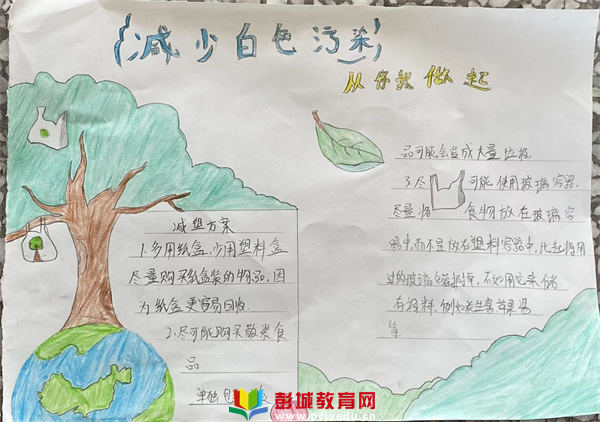 减少白色污染
从你我做起
减塑方案
1.多用纸盒,少用塑料盒
尽量购买纸盒装的物品,因
为纸盒更容易回收.
2.尽可能购买散装食
品
单独包
品可能会造成大量垃圾
3.尽可能使用玻璃容器.
尽量将食物放在玻璃容
器中,而不是放在塑料容器中,比起将用
过的玻璃,不如用它来储
存
等.
彭城教育网
www.pcjyedu.cn